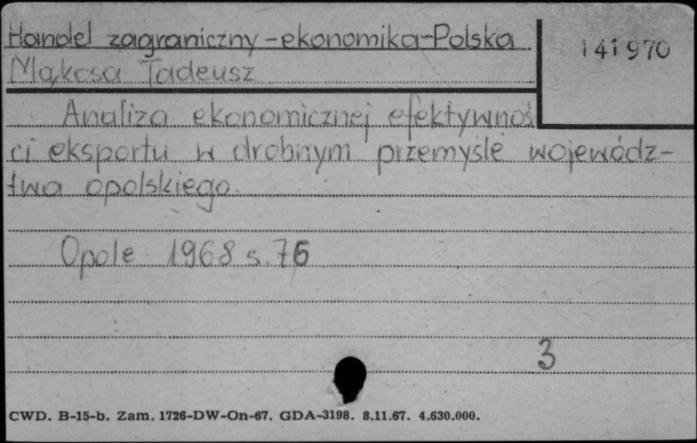 Handel zagraniczny - ekonomika - Polska
141970
Mąkosa Tadeusz
Analiza ekonomicznej efektywnoś
ci eksportu w drobnym przemyśle wojewódz-
twa opolskiego
Opole 1968 s. 76
3
CWD. B-15-b. Zam. 1726-DW-On-67. GDA-3198. 8.11.67. 4.630.000.